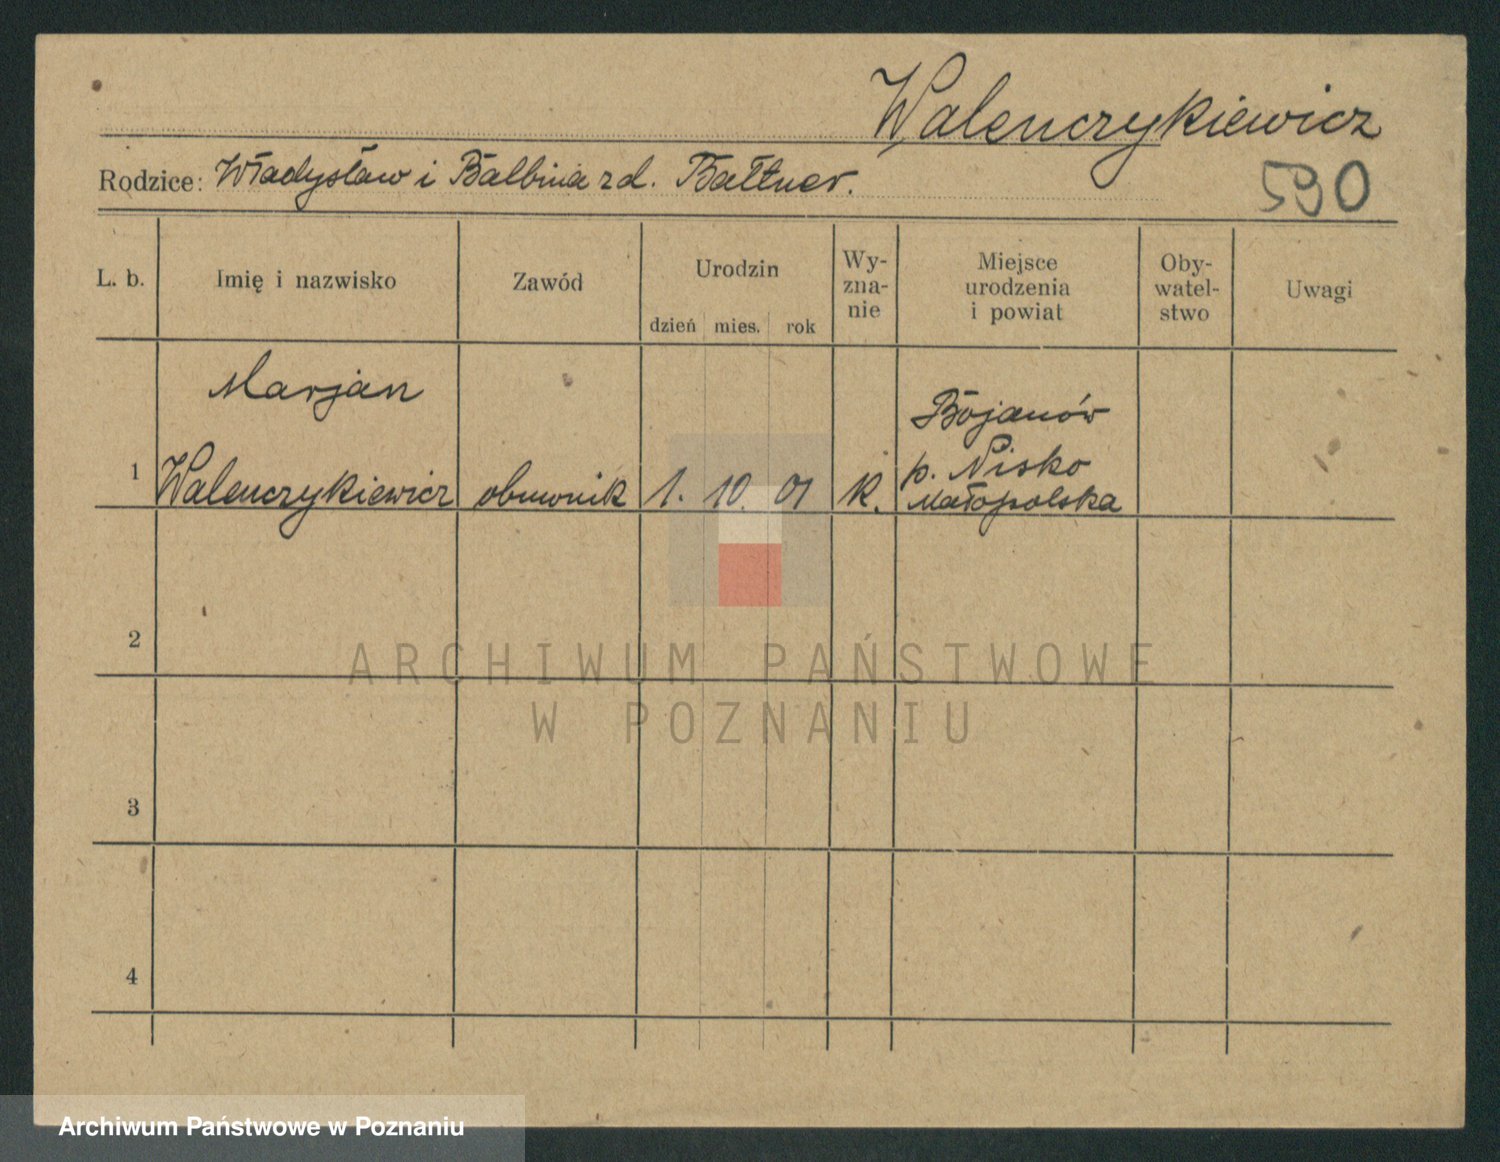 Walenczykiewicz
Rodzice: Władysław i Balbina zd. Bałtner.
590
L. b.
Imię i nazwisko
Zawód
Urodzin
dzień mies. rok
Wy-
zna-
nie
Miejsce
urodzenia
i powiat
Oby-
watel-
stwo
Uwagi
1
Marjan
Walenczykiewicz
obuwnik
1. 10. 01
K.
Bojanów
p. Nisko
Małopolska
2
3
4
ARCHIWUM PAŃSTWOWE
W POZNANIU
Archiwum Państwowe w Poznaniu